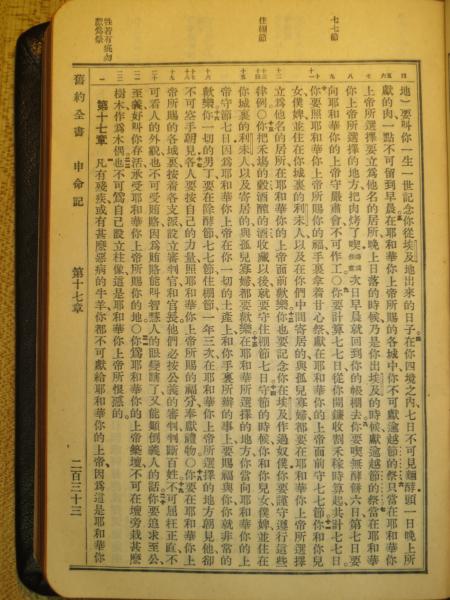 七七節
住棚節
牲若有疵勿獻爲祭
地)要叫你一生一世記念你從埃及地出來的日子在你四境之內七日不可見麵酵頭一日晚上所
獻的肉一點不可留到早晨在耶和華你上帝所賜你的各城中你不可獻逾越節的祭只當在耶和華你
上帝所選擇要立爲他名的居所晚上日落的時候乃是你出埃及的時候獻逾越節的祭當在耶和華
你上帝所選擇的地方把肉烤了喫次日早晨就回到你的帳棚去你要喫無酵餅六日第七日要
向耶和華你的上帝守嚴肅會不可作工〇你要計算七七日從你開鐮收割禾稼時算起共計七七日
你要照耶和華你上帝所賜你的福手裏拿着甘心祭獻在耶和華你的上帝面前守七七節你和你兒
女僕婢並住在你城裏的利未人以及在你們中間寄居的與孤兒寡婦都要在耶和華你上帝所選擇
立爲他名的居所在耶和華你的上帝面前歡樂你也要記念你在埃及作過奴僕你要謹守遵行這些
律例〇你把禾場的穀酒醡的酒收藏以後就要守住棚節七日守節的時候你和你兒女僕婢並住在
你城裏的利未人以及寄居的與孤兒寡婦都要歡樂在耶和華所選擇的地方你當向耶和華你的上
帝守節七日因爲耶和華你上帝在你一切的土產上和你手裏所辦的事上要賜福與你你就非常的
歡樂你一切的男丁要在除酵節七七節住棚節一年三次在耶和華你上帝所選擇的地方朝見他卻
不可空手朝見各人要按自己的力量照耶和華你上帝所賜的福分奉獻禮物〇你要在耶和華你上
帝所賜的各城裏按着各支派設立審判官和官長他們必按公義的審判判斷百姓不可屈枉正直不
可看人的外貌也不可受賄賂因爲賄賂能叫智慧人的眼變瞎了又能顚倒義人的話你要追求至公
至義好叫你存活承受耶和華你上帝所賜你的地〇你爲耶和華你的上帝築壇不可在壇旁栽甚麼
樹木作爲木偶也不可爲自己設立柱像這是耶和華你上帝所恨惡的
第十七章 凡有殘疾或有甚麼惡病的牛羊你都不可獻給耶和華你的上帝因爲這是耶和華你
舊約全書 申命記 第十七章 二百三十三